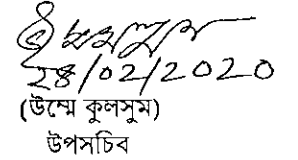 ২৪/০২/২০২০
(উম্মে কুলসুম)
উপসচিব